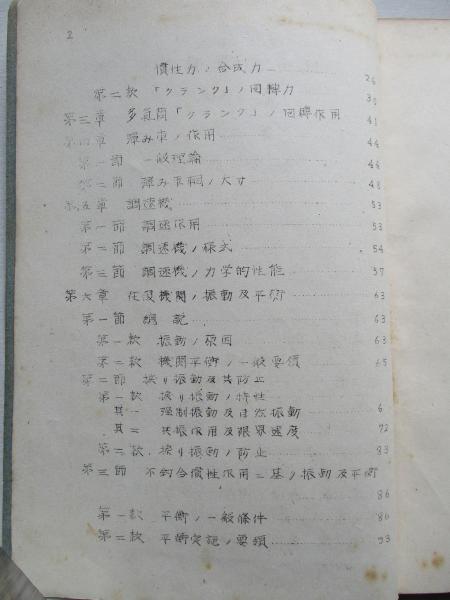 2
慣性力ノ合成力 26
第二款 「クランク」ノ回轉力 30
第三章 多気筒「クランク」ノ回轉作用 41
第四章 彈み車ノ作用 44
第一節 一般理論 44
第二節 彈み車輞ノ大寸 48
第五章 調速機 53
第一節 調速作用 53
第二節 調速機ノ樣式 54
第三節 調速機ノ力学的性能 57
第六章 往復機関ノ振動及平衡 63
第一節 總説 63
第一款 振動ノ原因 63
第二款 機関平衡ノ一般要領 65
第二節 捩リ振動及其防止
第一款 捩リ振動ノ特性
其一 强制振動及自然振動 6
其二 共振作用及限界速度 72
第二款 捩リ振動ノ防止 83
第三節 不釣合慣性作用ニ基ク振動及平衡
86
第一款 平衡ノ一般條件 86
第二款 平衡実施ノ要領 93